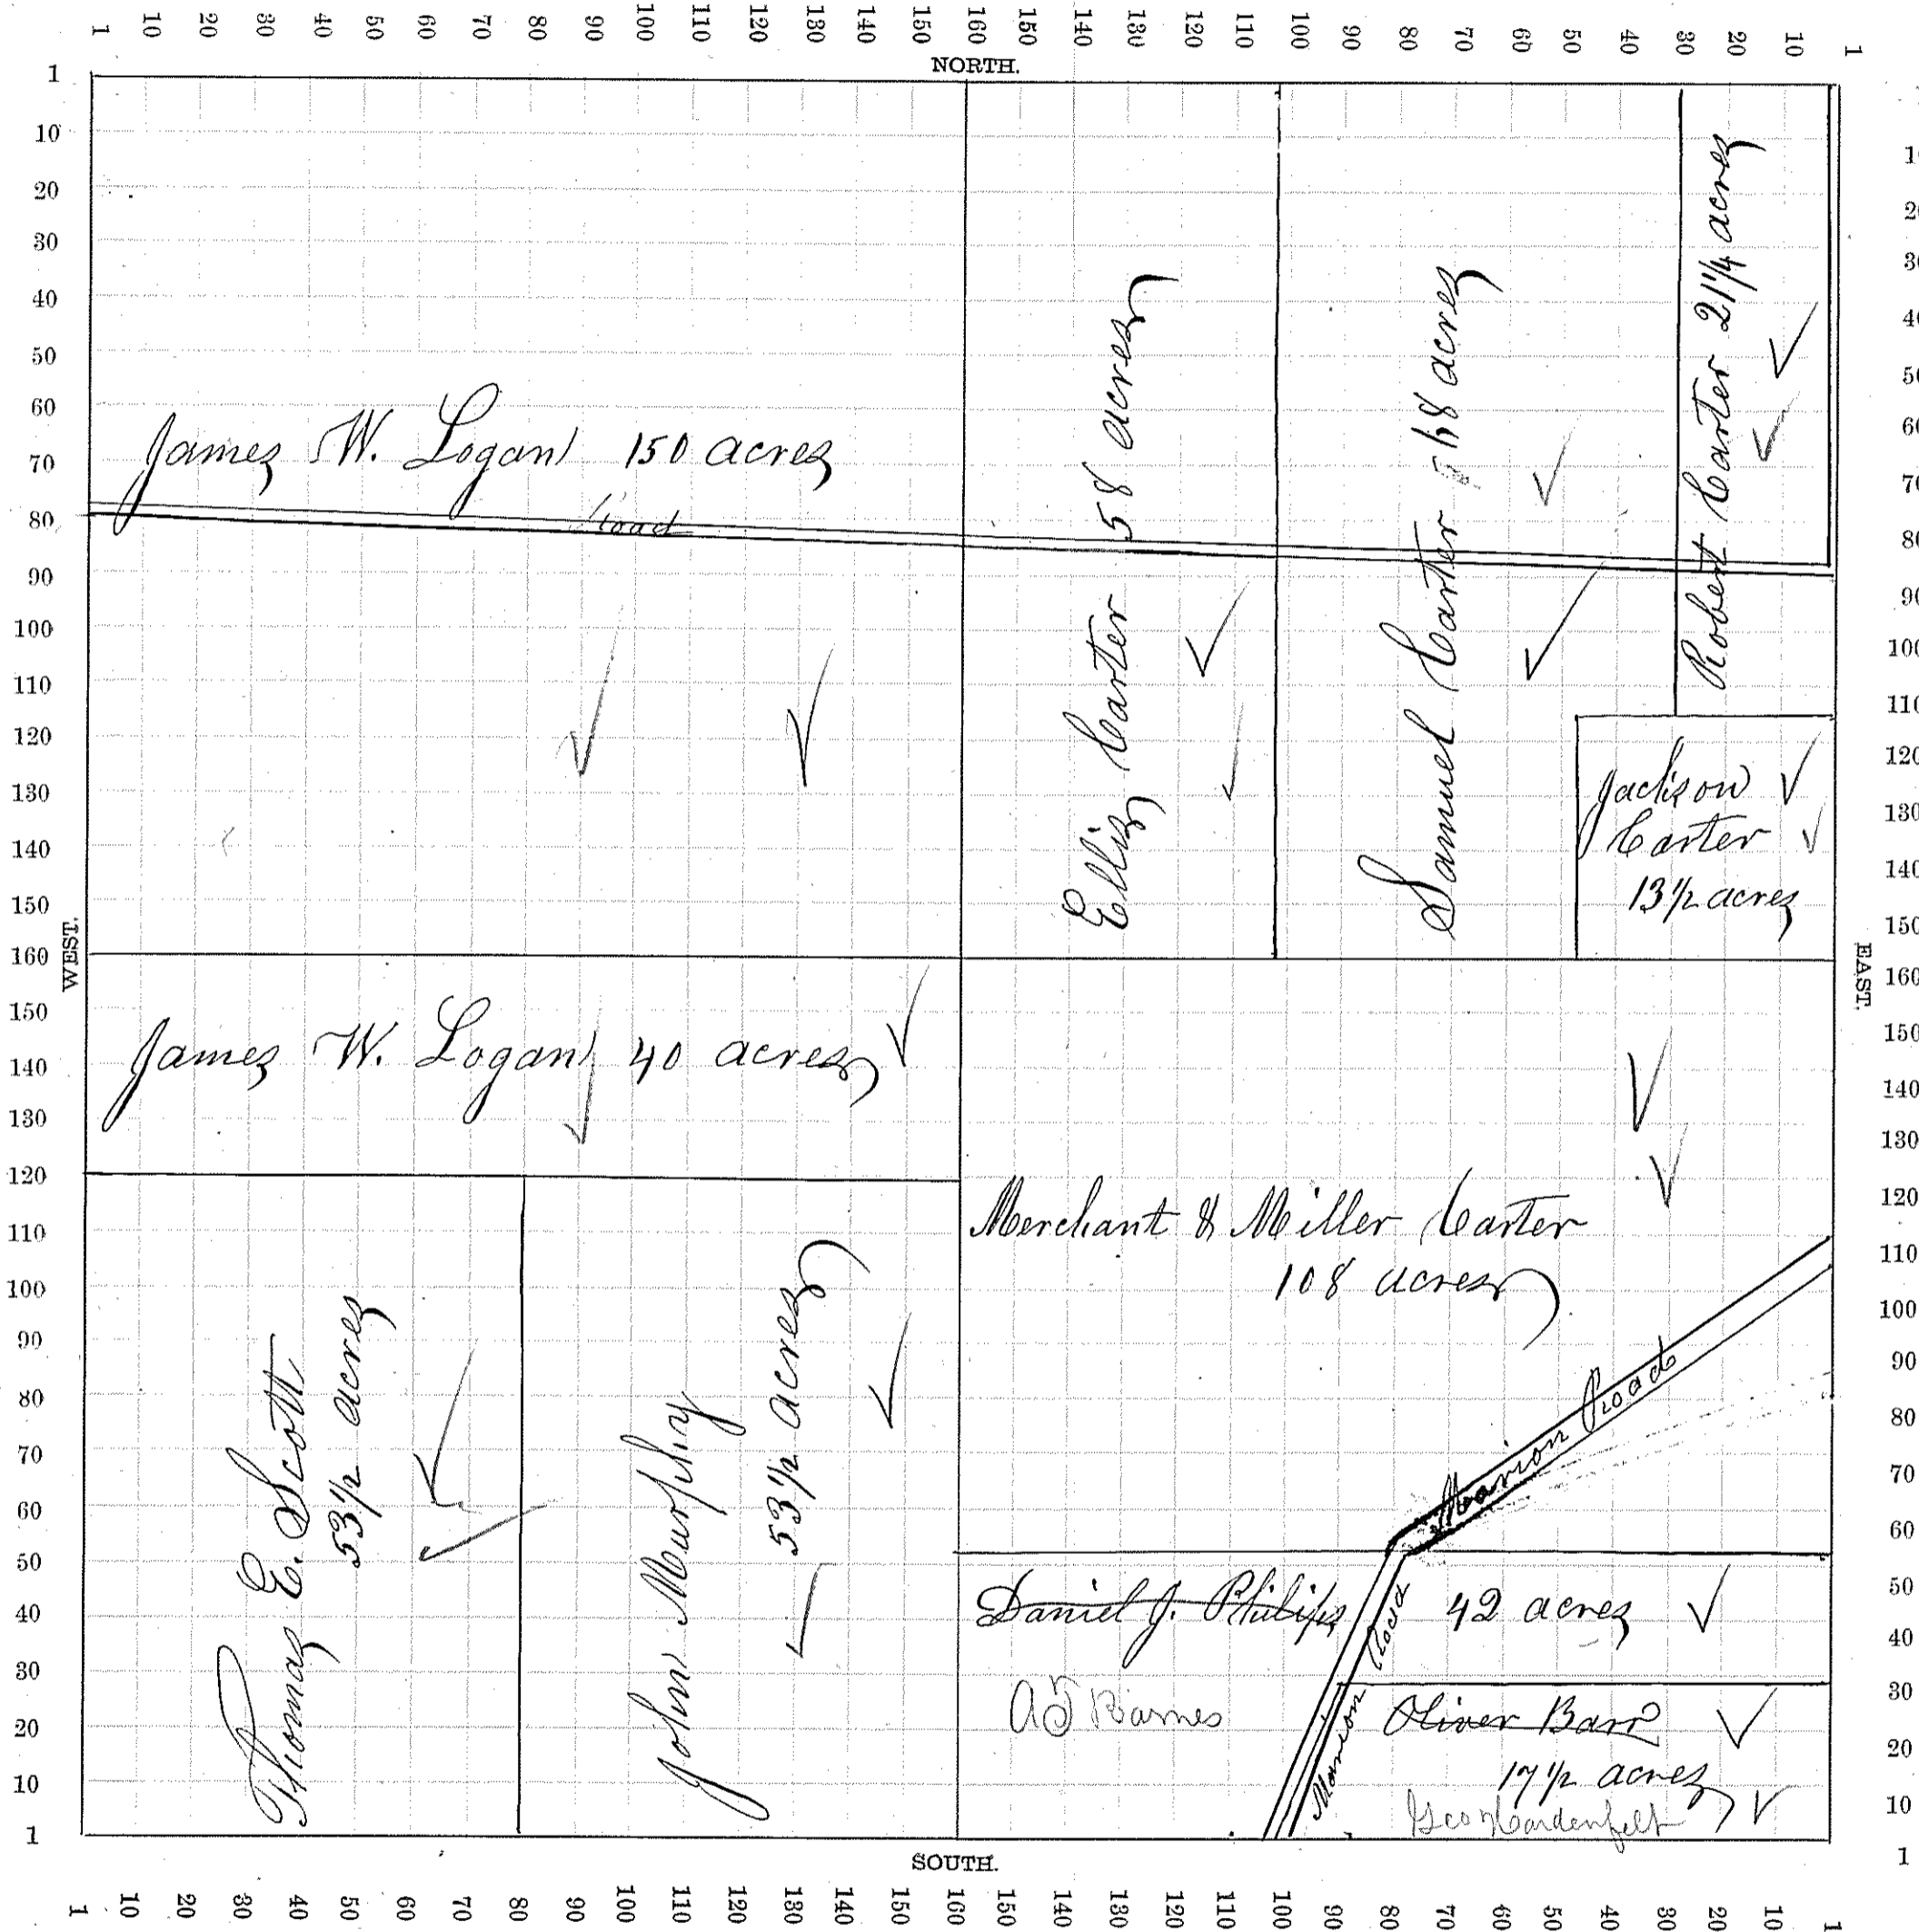 1 10 20 30 40 50 60 70 80 90 100 110 120 130 140 150 160 150 140 130 120 110 100 90 80 70 60 50 40 30 20 10 1
NORTH.
1
10
20
30
40
50
60
70
80
90
100
110
120
130
140
150
160
150
140
130
120
110
100
90
80
70
60
50
40
30
20
10
1
WEST.
James W. Logan 150 acres
Road
Ellis Carter 58 acres
Samuel Carter 68 acres
Robert Carter 21 1/4 acres
Jackson
Carter
13 1/2 acres
James W. Logan 40 acres
Merchant & Miller Carter
108 acres
Thomas E. Scott
53 1/2 acres
John Murphy
53 1/2 acres
Marion Road
Daniel J. Philips 42 acres
Marion Road
Barnes
Oliver Barr
17 1/2 acres
Geo Hardenfelt
EAST.
10
20
30
40
50
60
70
80
90
100
110
120
130
140
150
160
150
140
130
120
110
100
90
80
70
60
50
40
30
20
10
1
SOUTH.
1 10 20 30 40 50 60 70 80 90 100 110 120 130 140 150 160 150 140 130 120 110 100 90 80 70 60 50 40 30 20 10 1